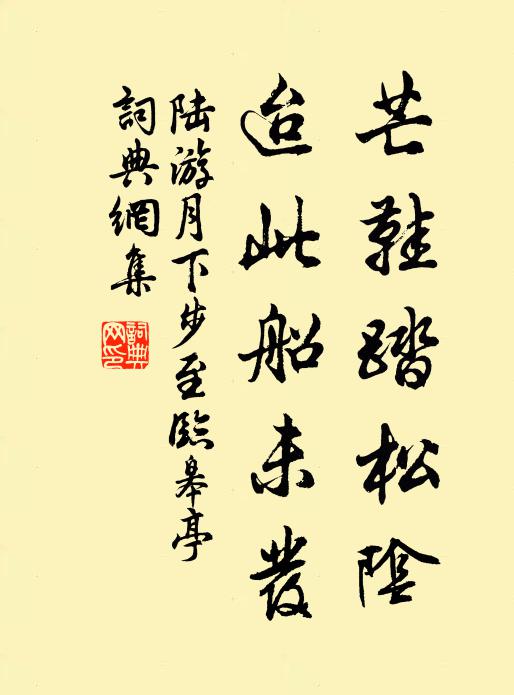 芒鞋踏松陰
迨此船未發
陸游月下步至臨皋亭
詞典網集
詞典網印